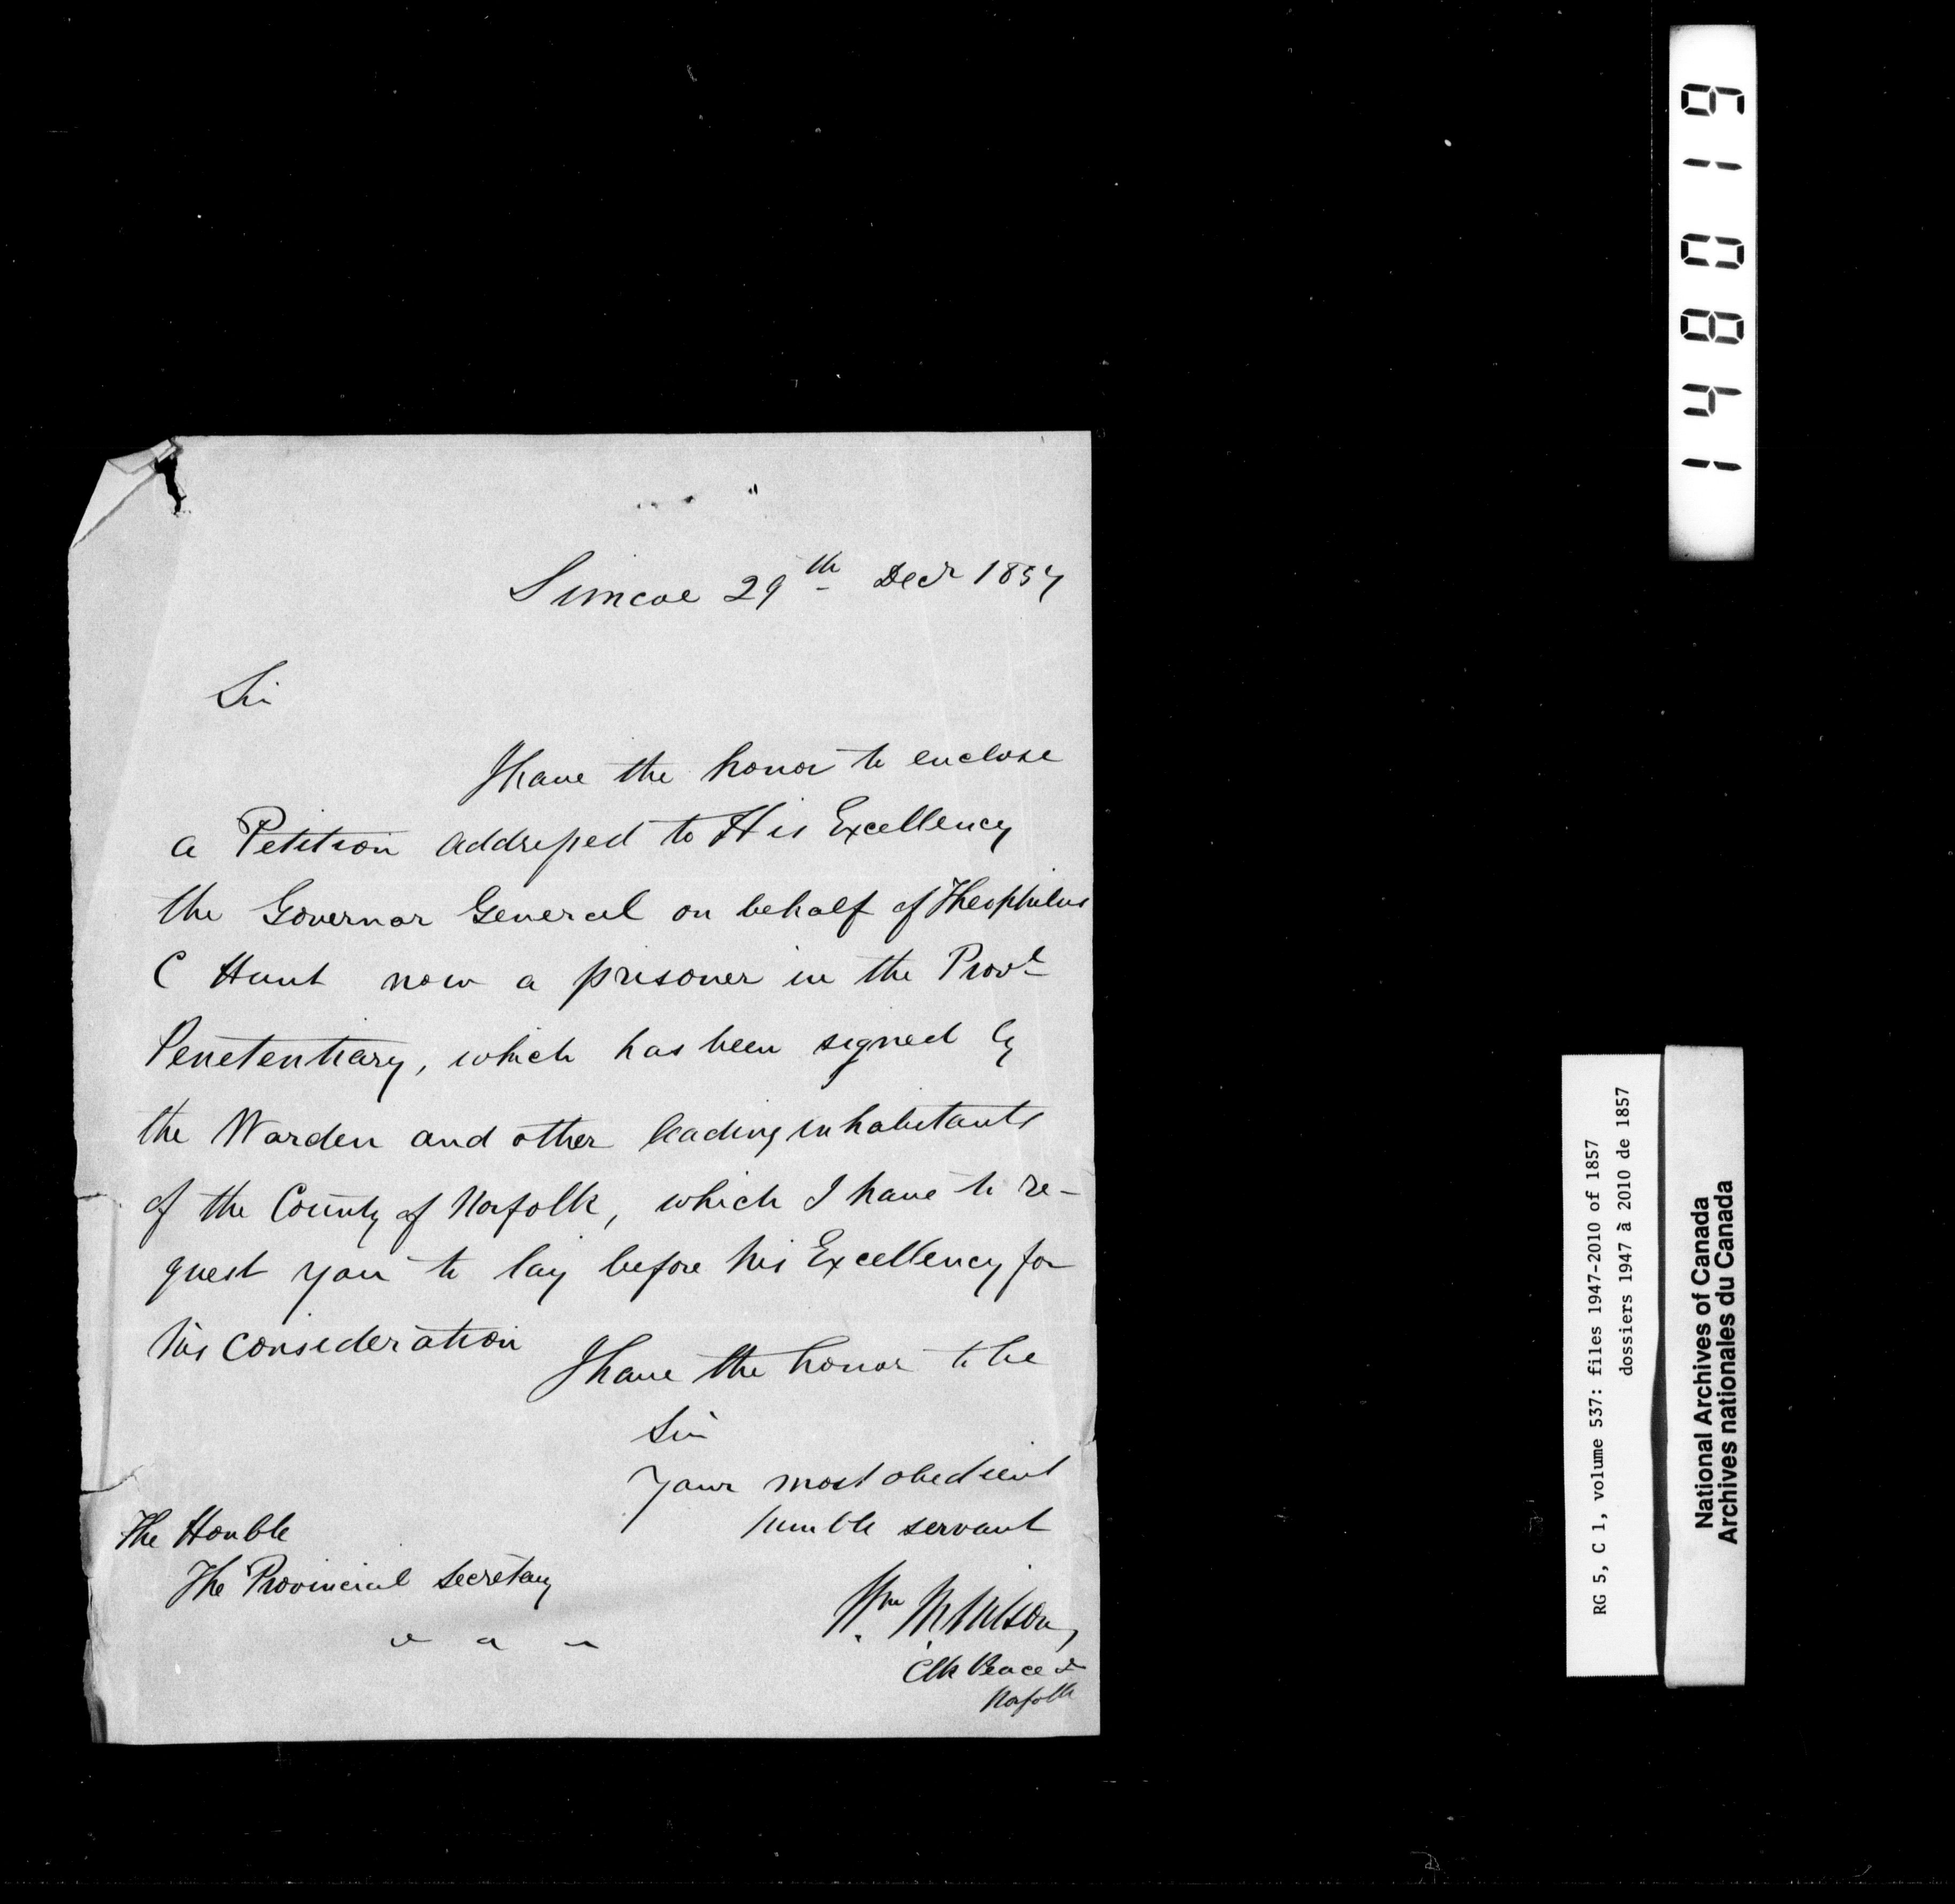 Simcoe 29th Decr 1857
Sir
I have the honor to enclose
a Petition addressed to His Excellency
the Governor General on behalf of Theophilus
C Hunt now a prisoner in the Provl
Penetentiary, which has been signed by
the Warden and other leading inhabitants
of the County of Norfolk, which I have to re-
quest you to lay before his Excellency for
his consideration
I have the honor to be
Sir
Your most obedient
humble servant
The Honble
The Provincial Secretary
Wm M Wilson
Clk Peace
Norfolk
148019
RG 5, C 1, volume 537: files 1947-2010 of 1857
dossiers 1947 à 2010 de 1857
National Archives of Canada
Archives nationales du Canada